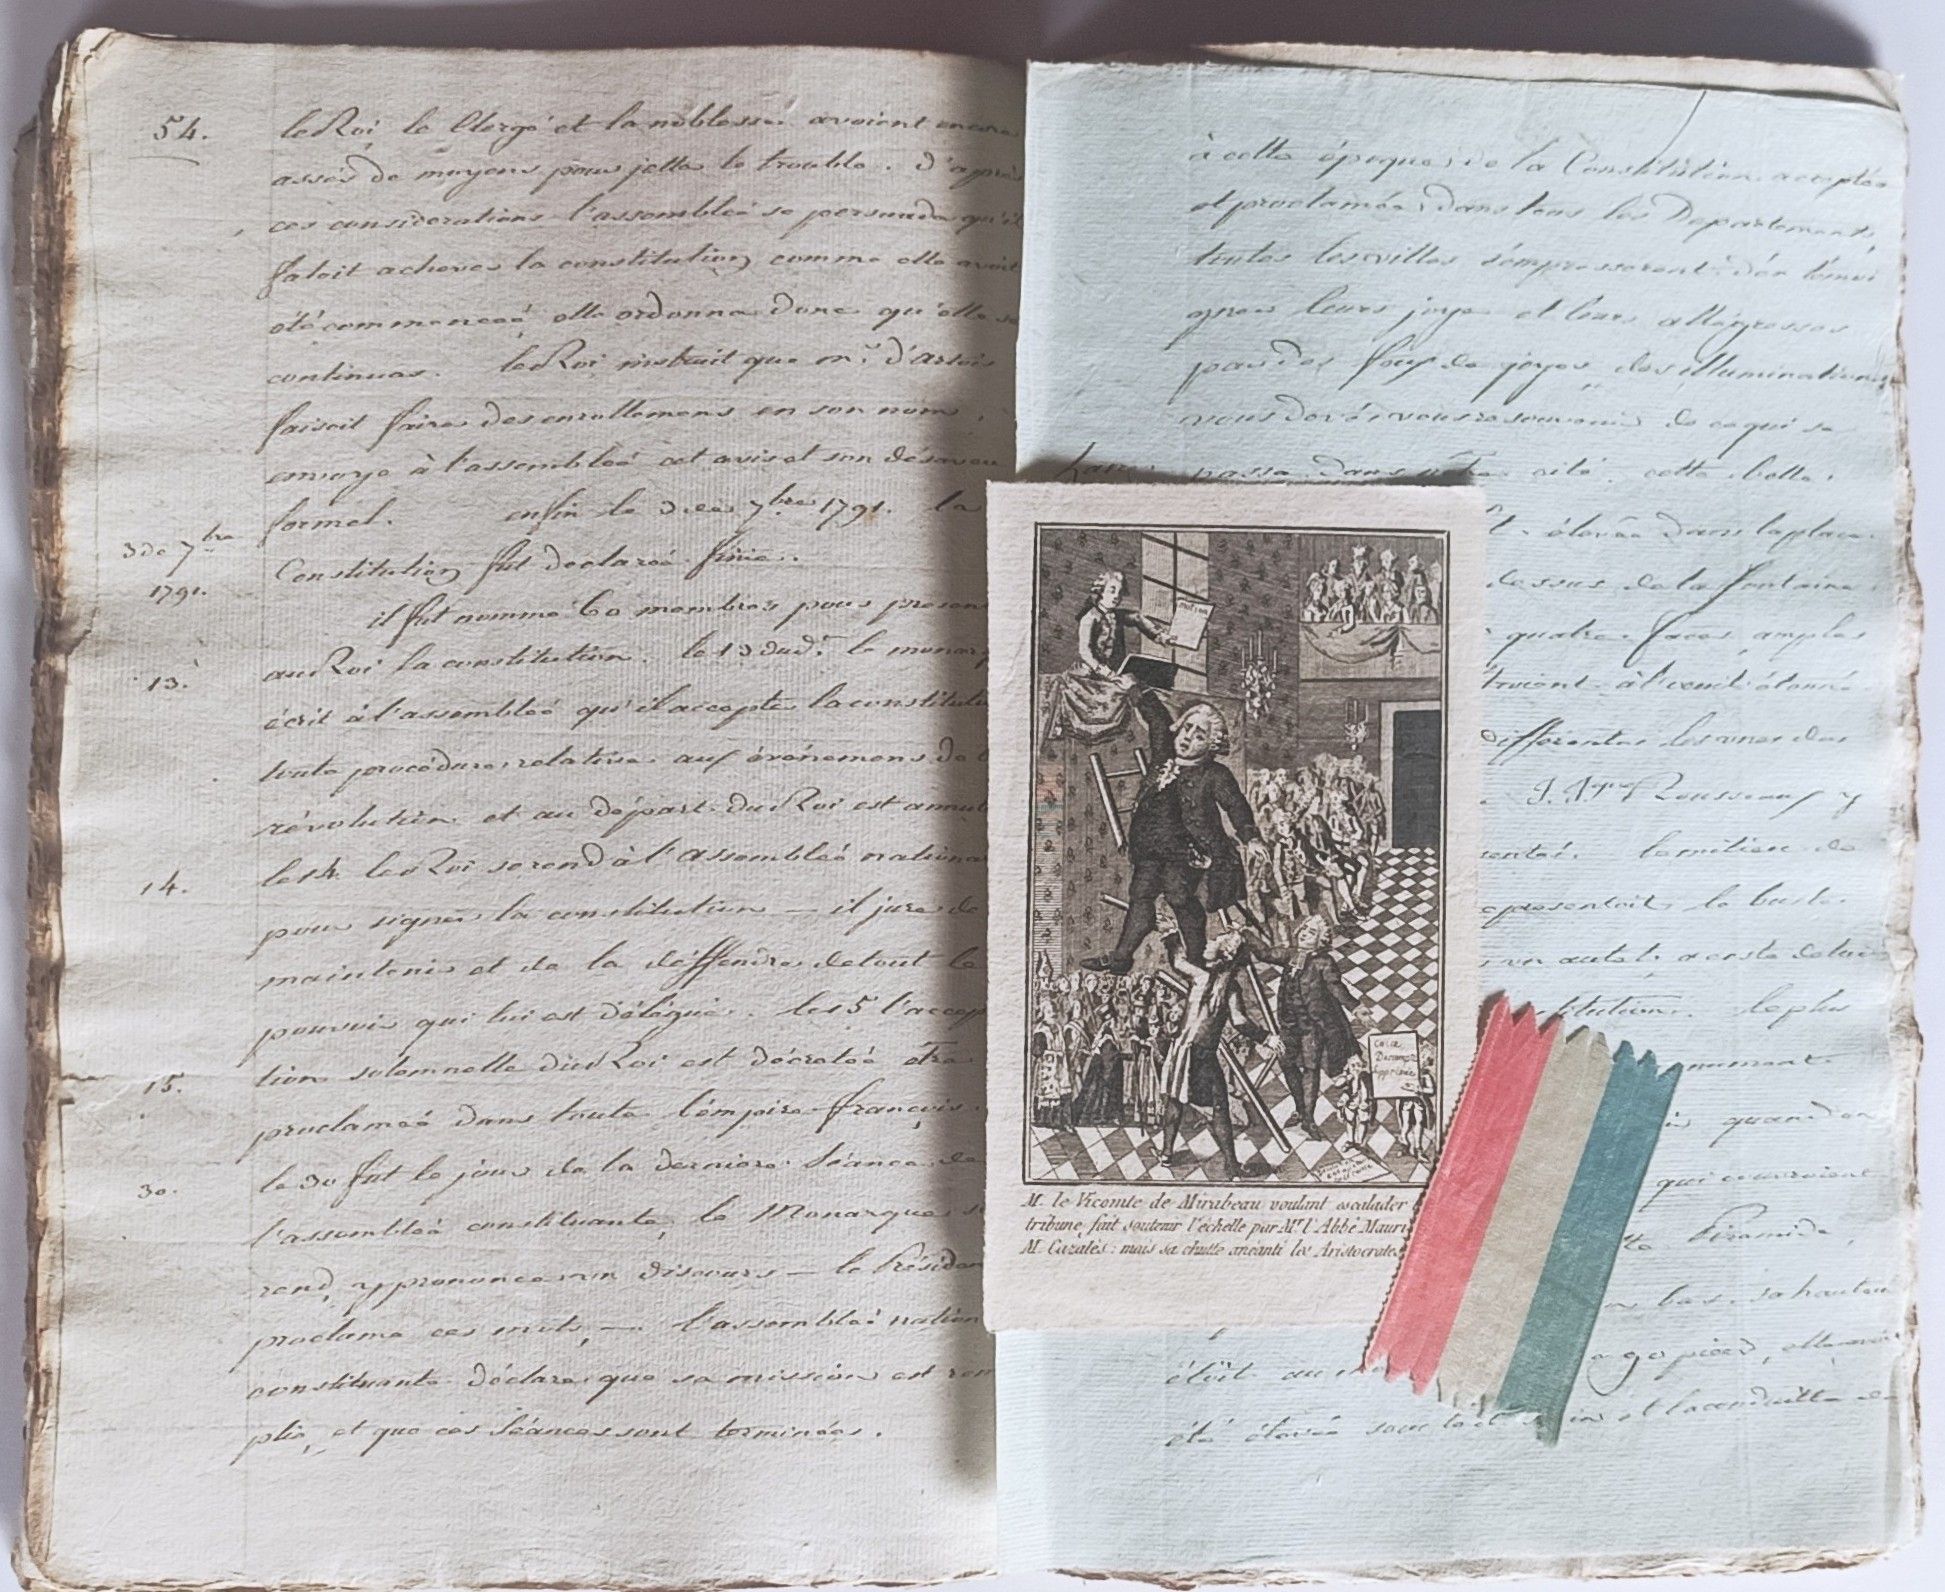 54.
le Roi, le Clergé et la noblesse avoient encore
assés de moyens pour jetter le trouble. d'après
ces considerations l'assembleé se persuade qu'il
faloit achever la constitution comme elle avoit
été commenceé, elle ordonna donc qu'elle se
continuas. le Roi instruit que mr. d'artois
faisoit faire des enrollemens en son nom,
envoye à l'assembleé cet avis et son désaveu
formel. enfin le 3 de 7bre 1791. la
3 de 7bre
1791.
Constitution fut declareé finie.
il fut nommé 60 membres pour presen
au Roi la constitution. le 13 dud.t le monar
13.
écrit à l'assembleé qu'il accepte la constituti
toute procédure relative aux événemens de l
révolution et au départ du Roi est annul
le 14. le Roi se rend à l'assembleé nationa
14.
pour signer la constitution — il jure de
maintenir et de la déffendre de tout le
pouvoir qui lui est délégué. le 15 l'accep
tion solemnelle du Roi est décreteé être
15.
proclameé dans toute l'émpire françois.
le 30 fut le jour de la derniere séance de
30.
l'assembleé constituante, le Monarque s
rend, y prononce un discours — le Présiden
proclame ces mots, — l'assembleé nation
constituante déclare que sa mission est rem
plie, et que ces séances sont terminées.
à cette époque de la Constitution acceptée
et proclameé dans tous les Departements,
toutes les villes s'émpresserent d'en témoi
gner leurs joye et leurs allégresses
par des feux de joyes, des illuminations
vous devés vous ressouvenir de ce qui se
passa dans votre cité. cette belle
élevée dans la place
dessus de la fontaine
quatre faces amples
à l'oeuil étonné
différentes les unes des
J. Jques Rousseau y
senté. le milieu de
epresentoit le buste
un autel, a coté de lui
stitution. le plus
nument
quand on
qui couvroient
Piramide,
bas. sa hauteur
étoit au 90 pieds, elle avoit
été élevée sous la et la conduitte de
motion
M. le Vicomte de Mirabeau voulant escalader
tribune, fait soutenir l'échelle par Mr. l'Abbé Mauri
M. Cazalès : mais sa chutte anéanti les Aristocrates